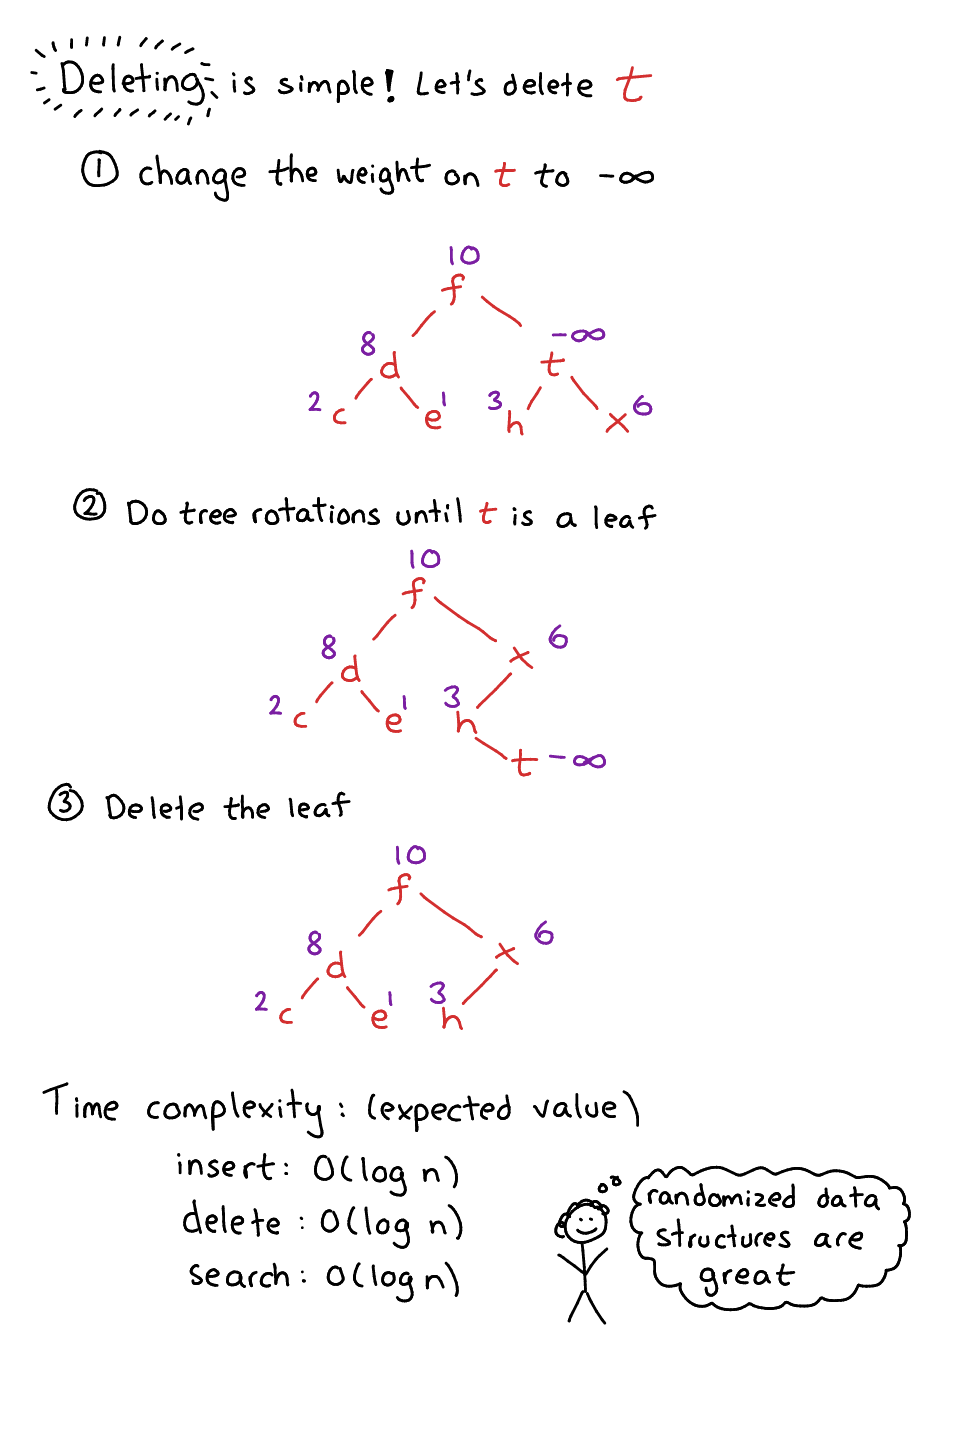 Deleting is simple! Let's delete t
① change the weight on t to -∞
10
f
8 -∞
d t
2 c e 1 3 h x 6
② Do tree rotations until t is a leaf
10
f
8 x 6
d
2 c e 1 3 h
t -∞
③ Delete the leaf
10
f
8 x 6
d
2 c e 1 3 h
Time complexity: (expected value)
insert: O(log n)
delete: O(log n)
search: O(log n)
randomized data
structures are
great